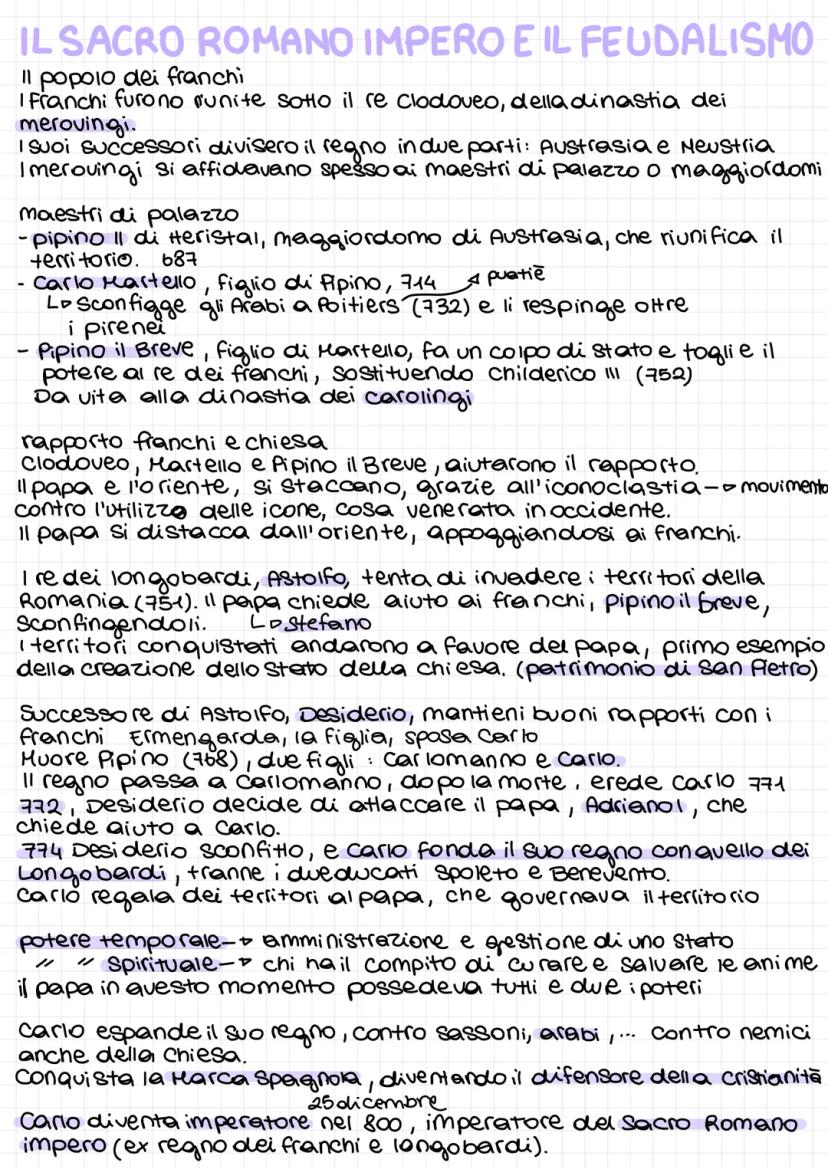 IL SACRO ROMANO IMPERO E IL FEUDALISMO
Il popolo dei franchi
I Franchi furono riunite sotto il re Clodoveo, della dinastia dei
merovingi.
I suoi successori divisero il regno in due parti: Austrasia e Neustria
I merovingi si affidavano spesso ai maestri di palazzo o maggiordomi
maestri di palazzo
- pipino II di Heristal, maggiordomo di Austrasia, che riunifica il
territorio. 687
- Carlo Martello, figlio di Pipino, 714
↳ Sconfigge gli Arabi a Poitiers (732) e li respinge oltre
i pirenei
- Pipino il Breve, figlio di Martello, fa un colpo di stato e toglie il
potere al re dei franchi, sostituendo Childerico III (752)
Da vita alla dinastia dei carolingi
rapporto franchi e chiesa
Clodoveo, Martello e Pipino il Breve, aiutarono il rapporto.
Il papa e l'oriente, si staccano, grazie all'iconoclastia → movimento
contro l'utilizzo delle icone, cosa venerata in occidente.
Il papa si distacca dall'oriente, appoggiandosi ai franchi.
I re dei longobardi, Astolfo, tenta di invadere i territori della
Romania (751). Il papa chiede aiuto ai franchi, pipino il breve,
sconfingendoli. ↳ Stefano
I territori conquistati andarono a favore del papa, primo esempio
della creazione dello stato della chiesa. (patrimonio di San Pietro)
Successore di Astolfo, Desiderio, mantieni buoni rapporti con i
franchi Ermengarda, la figlia, sposa Carlo
Muore Pipino (768), due figli : Carlomanno e Carlo.
Il regno passa a carlomanno, dopo la morte, erede Carlo 771
772, Desiderio decide di attaccare il papa, Adriano I, che
chiede aiuto a Carlo.
774 Desiderio sconfitto, e Carlo fonda il suo regno con quello dei
Longobardi, tranne i due ducati Spoleto e Benevento.
Carlo regala dei territori al papa, che governava il territorio
potere temporale → amministrazione e gestione di uno stato
" " spirituale → chi ha il compito di curare e salvare le anime
il papa in questo momento possedeva tutti e due i poteri
Carlo espande il suo regno, contro sassoni, arabi, ... contro nemici
anche della chiesa.
Conquista la Marca Spagnola, diventando il difensore della cristianità
25 dicembre
Carlo diventa imperatore nel 800, imperatore del Sacro Romano
impero (ex regno dei franchi e longobardi).